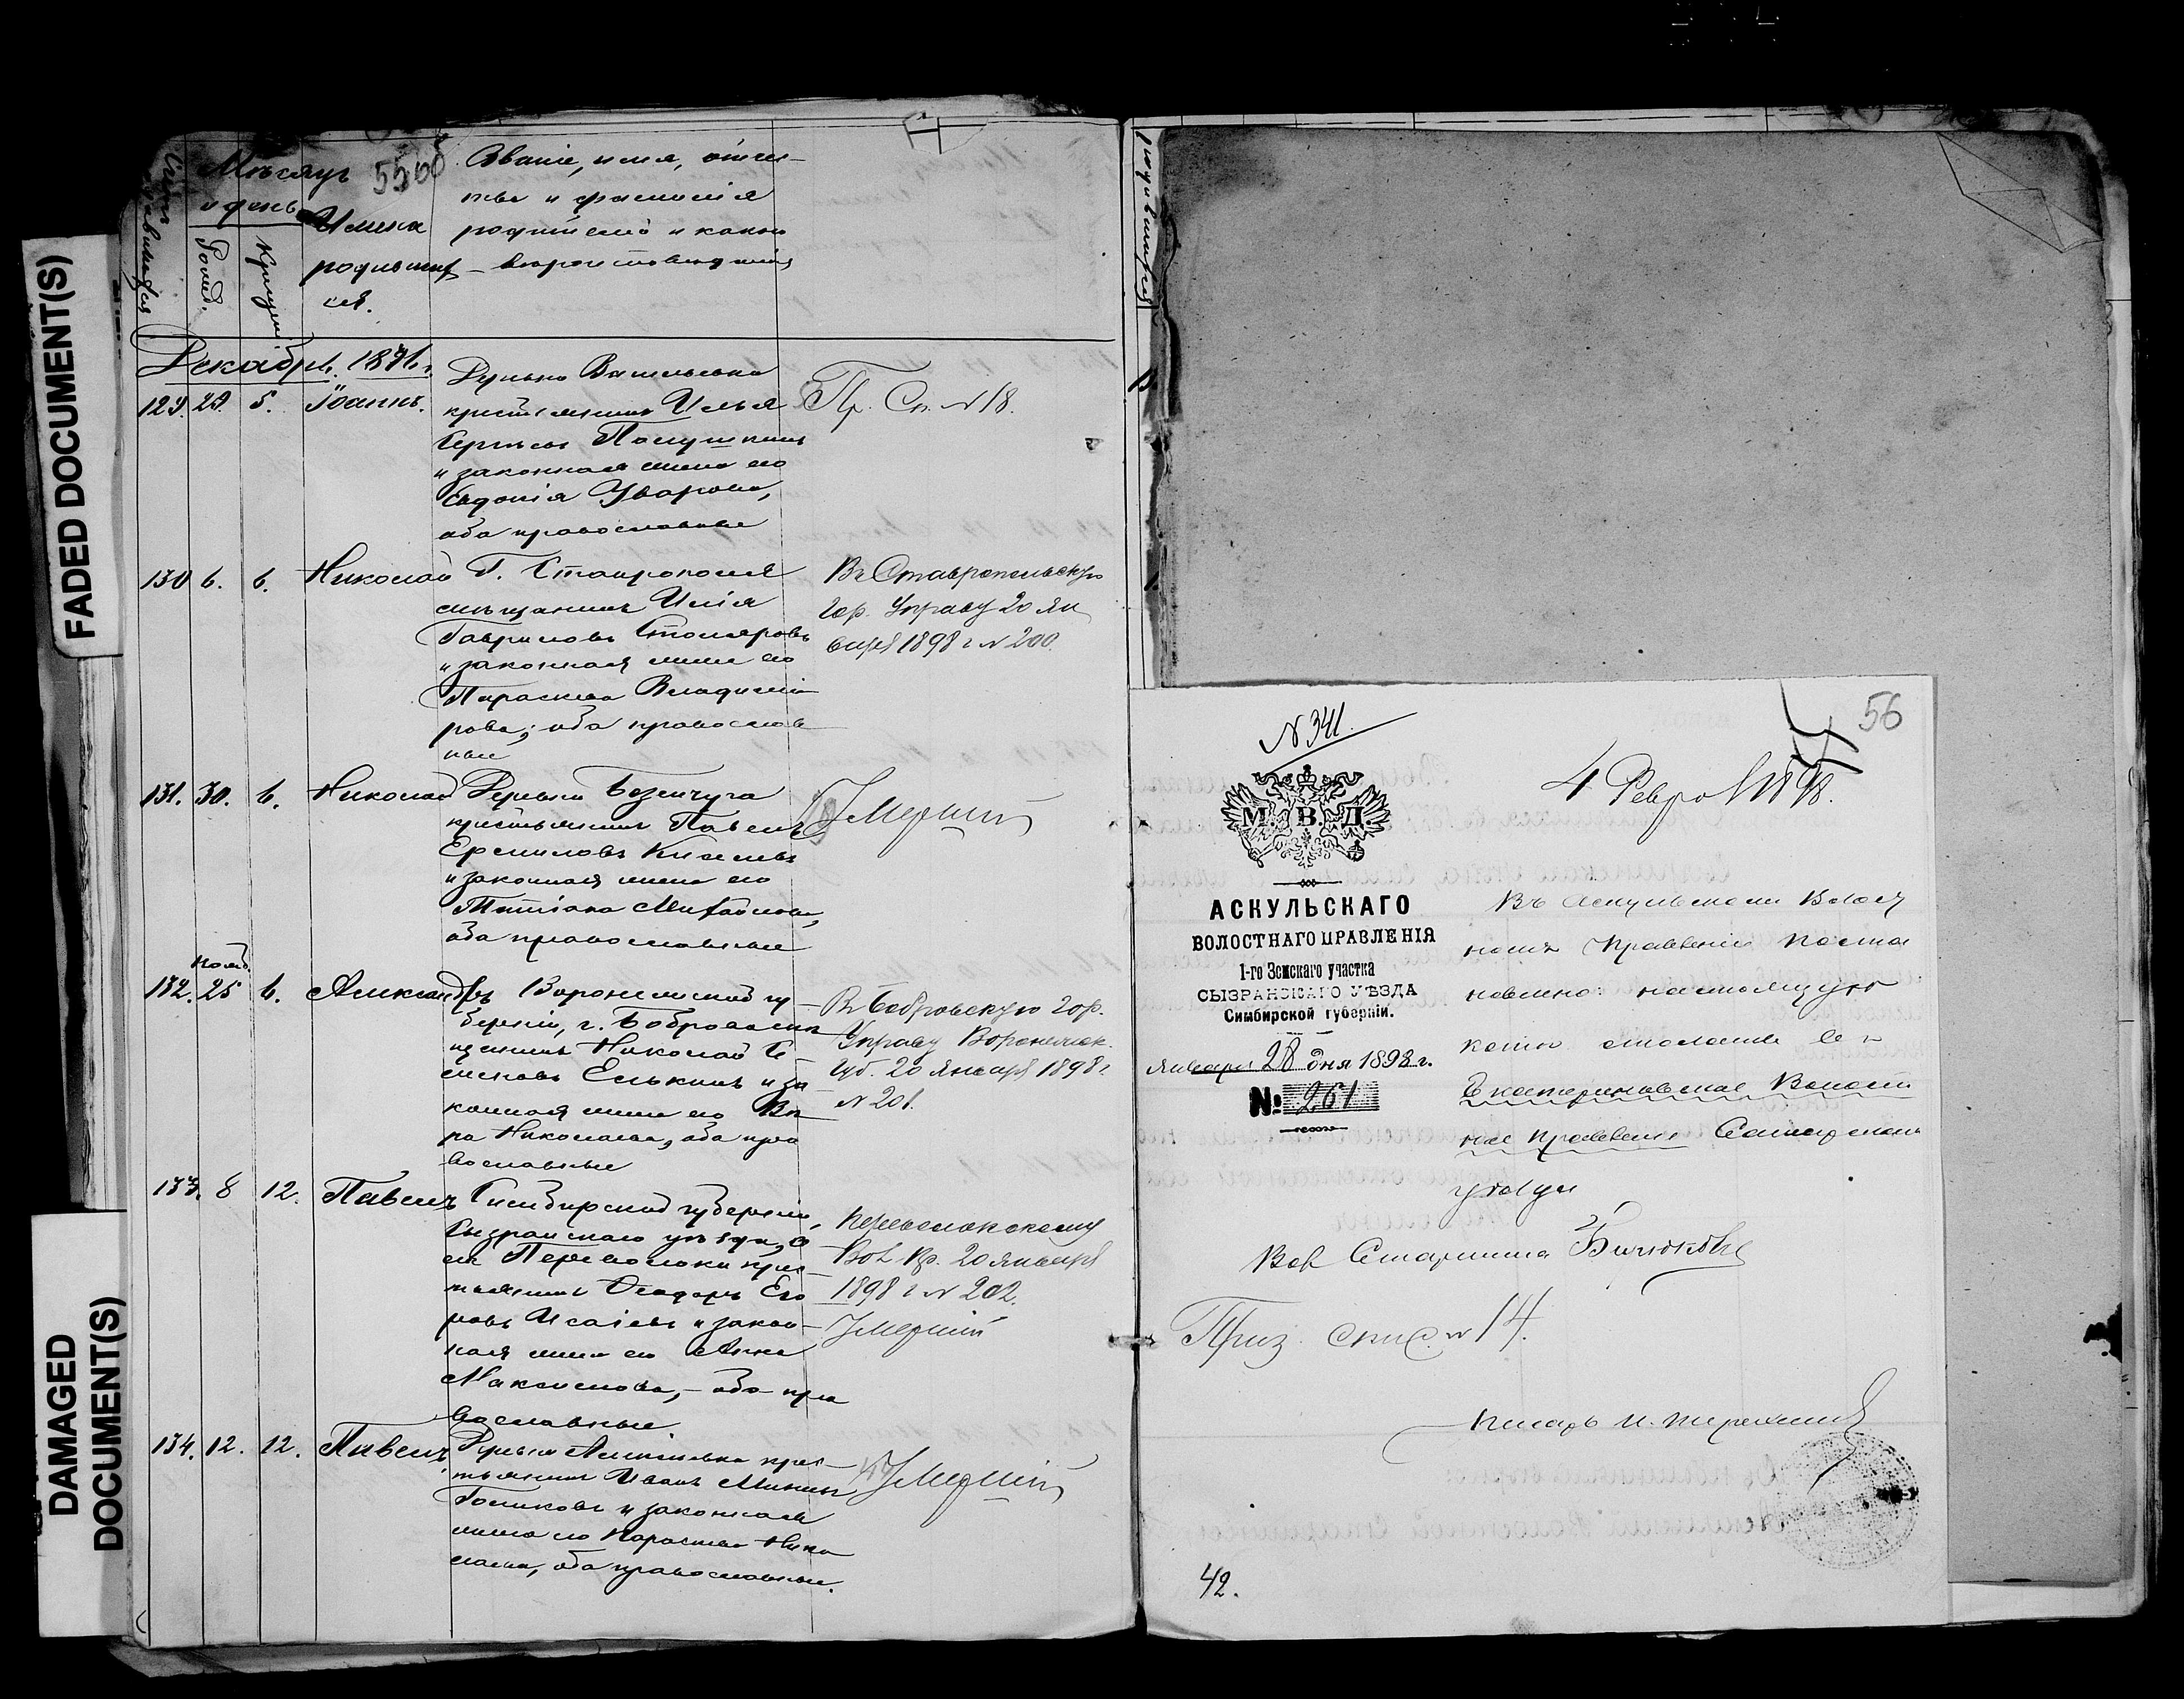 FADED DOCUMENT(S)
DAMAGED
DOCUMENT(S)
Мѣсяцъ
и день
Рожд.
Крещен.
Имена
родивших
ся.
Званіе, имя, отче-
ство и фамилія
родителей и какого
вѣроисповѣданія
Декабрь. 1876 г.
129. 29. 5. Іоаннъ.
крестьянинъ Илья
и законная жена его
Евдокія Уварова,
оба православные
Пр. Сп. № 18.
130 6. 6. Николай
Г. Ставрополя
мѣщанинъ Илія
Гавриловъ Столяровъ
и законная жена его
Параскева Владимі
рова; оба православ
ные
Въ Ставропольскую
Гор. Управу 20 Ян
варя 1898 г № 200.
131. 30. 6. Николай
Деревни Безенчуга
крестьянинъ Павелъ
Ермиловъ
и законная жена его
Татіана Михайлова,
оба православные
Умершій
132. нояб. 25 6. Александръ
Воронежской гу-
берніи, г. Боброва мѣ
щанинъ Николай Се
меновъ Елькинъ и за
конная жена его Вѣ
ра Николаева, оба пра
вославные
Въ Бобровскую гор.
Управу Воронежск.
Губ. 20 Января 1898 г.
№ 201.
133. 8 12. Павелъ
Симбирской губерніи,
Сызранскаго уѣзда, с
ела Переволоки крес-
тьянинъ Ѳеодоръ Его
ровъ Исаевъ и закон-
ная жена его Анна
Максимова, - оба пра
вославные
Переволокскому
Вол. Пр. 20 Января
1898 г № 202.
Умершій
134. 12. 12. Павелъ
крес-
тьянинъ Иванъ Мининъ
Голиковъ и законная
жена его Параскева Нико
лаева, оба православные.
Умершій
N 341.
56
4 Февр 1898.
М. В. Д.
АСКУЛЬСКАГО
ВОЛОСТНАГО ПРАВЛЕНІЯ
1-го Земскаго участка
СЫЗРАНСКАГО УѢЗДА
Симбирской губерніи.
Января 28 дня 1898 г.
№ 261
Въ Аскульскомъ Волост
номъ Правленіи постано
влено: настоящую
Екатериновское Волост
ное Правленіе Самарскаго
уѣзда
Вол Старшина Бичюковъ
Приз. спис. № 14.
Писарь
42.